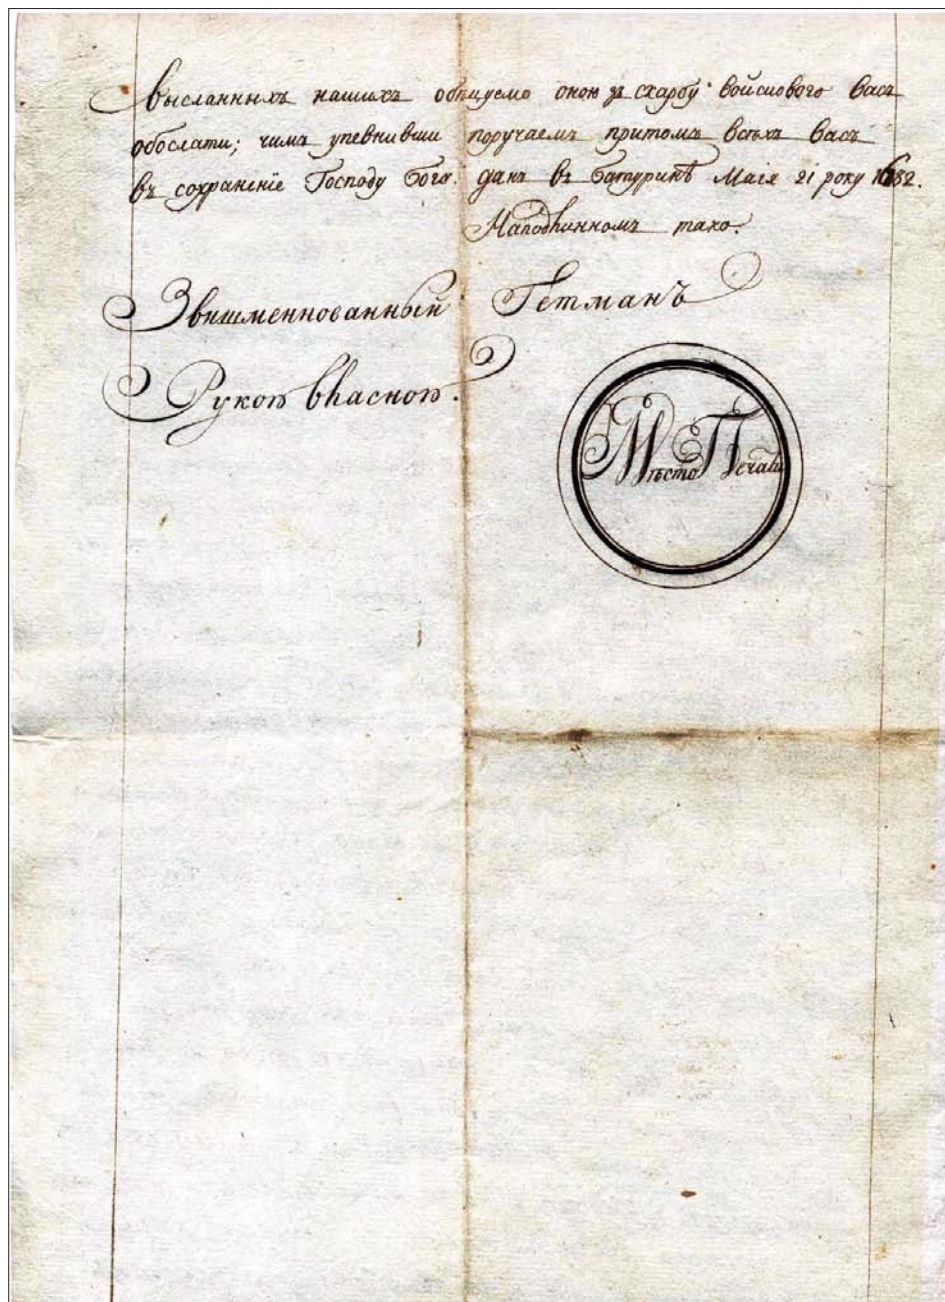 высланныхъ нашихъ обѣцуемо оною зъ скарбу войскового васъ
обослати; чимъ упевнивши поручаемъ притомъ всѣхъ васъ
въ сохраненіе Господу Богу. данъ въ Батуринѣ Маія 21 року 1682.
На подлинномъ тако.
Звишменнованный Гетманъ
Рукою власною.
Мѣсто Печати